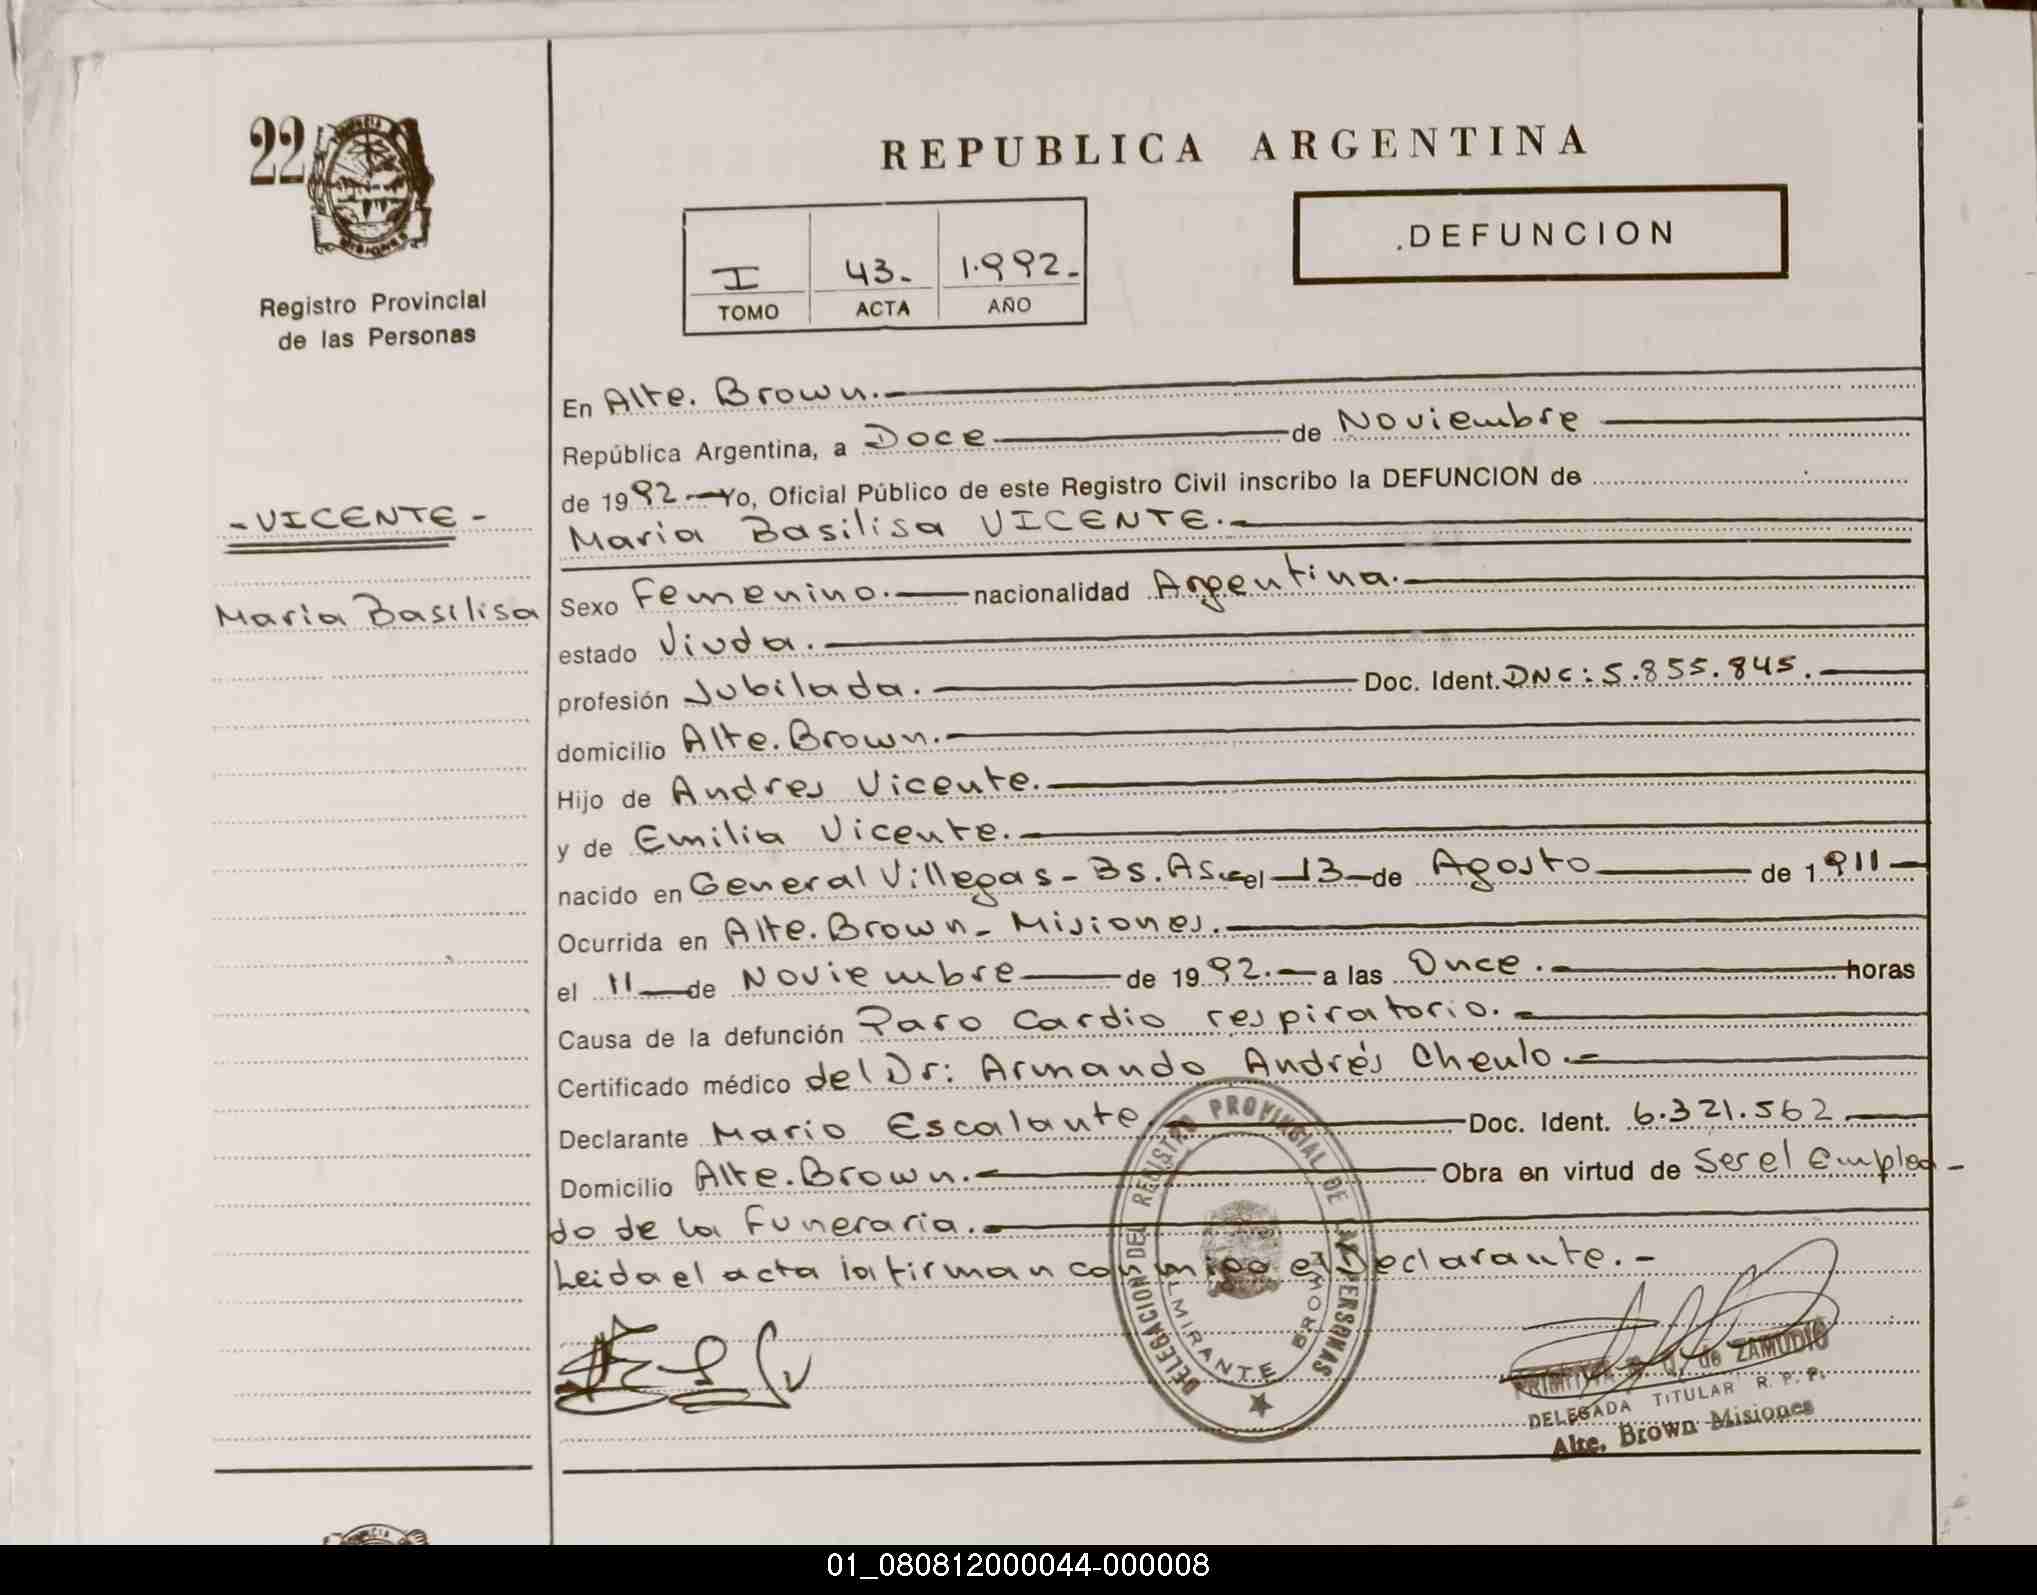 22
Registro Provincial
de las Personas
REPUBLICA ARGENTINA
DEFUNCION
I 43.- 1.992.-
TOMO ACTA AÑO
- VICENTE -
Maria Basilisa
En Alte. Brown.-
República Argentina, a Doce de Noviembre
de 1992.- Yo, Oficial Público de este Registro Civil inscribo la DEFUNCION de
Maria Basilisa VICENTE.-
Sexo Femenino.- nacionalidad Argentina.-
estado Viuda.-
profesión Jubilada.- Doc. Ident. DNC: 5.855.845.-
domicilio Alte. Brown.-
Hijo de Andres Vicente.-
y de Emilia Vicente.-
nacido en General Villegas - Bs. As. el 13 de Agosto de 1911
Ocurrida en Alte. Brown - Misiones.-
el 11 de Noviembre de 1992.- a las Once.- horas
Causa de la defunción Paro Cardio respiratorio.-
Certificado médico del Dr: Armando Andrés Cheulo.-
Declarante Mario Escalante.- Doc. Ident. 6.321.562
Domicilio Alte. Brown.- Obra en virtud de Ser el Emplea-
do de la Funeraria.-
Leida el acta la firman conmigo el Declarante.-
DELEGACION DEL REGISTRO PROVINCIAL DE LAS PERSONAS
ALMIRANTE BROWN
PRIMITIVA Q. de ZAMUDIO
DELEGADA TITULAR R. P. P.
Alte. Brown Misiones
01_080812000044-000008